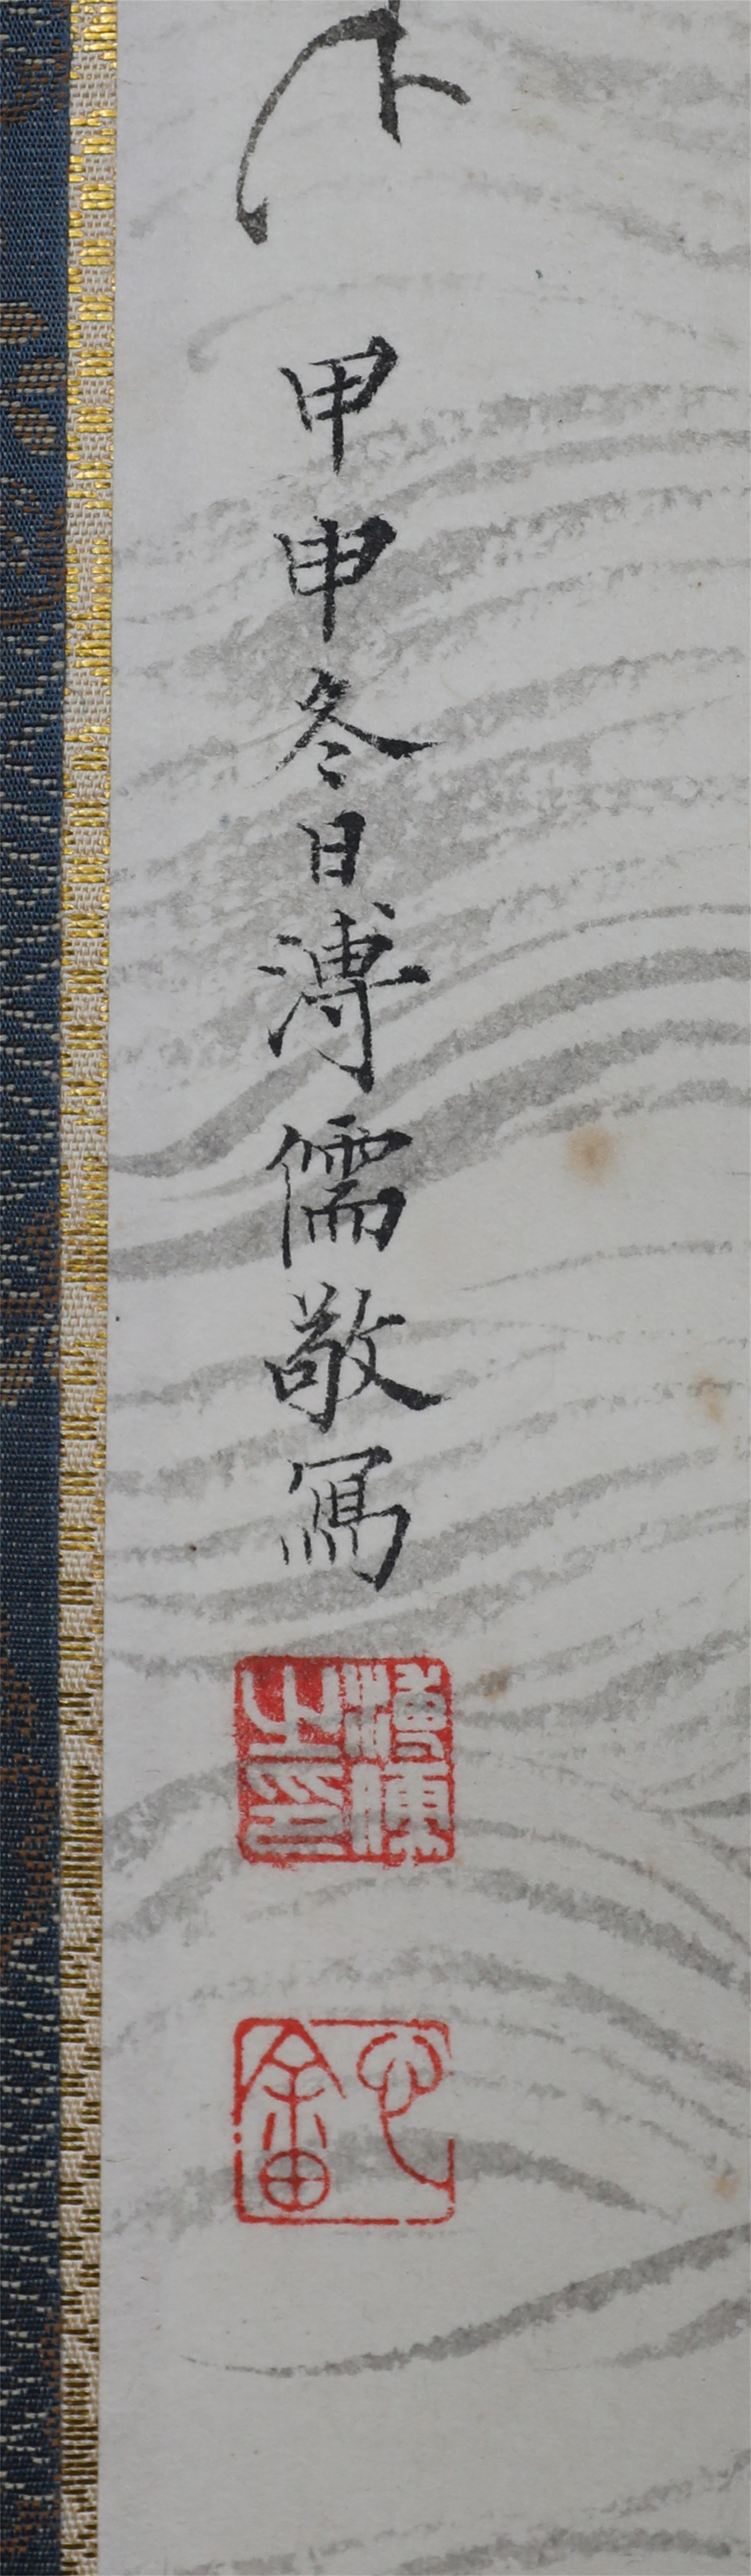 甲申冬日溥儒敬寫
溥儒之印
心畬